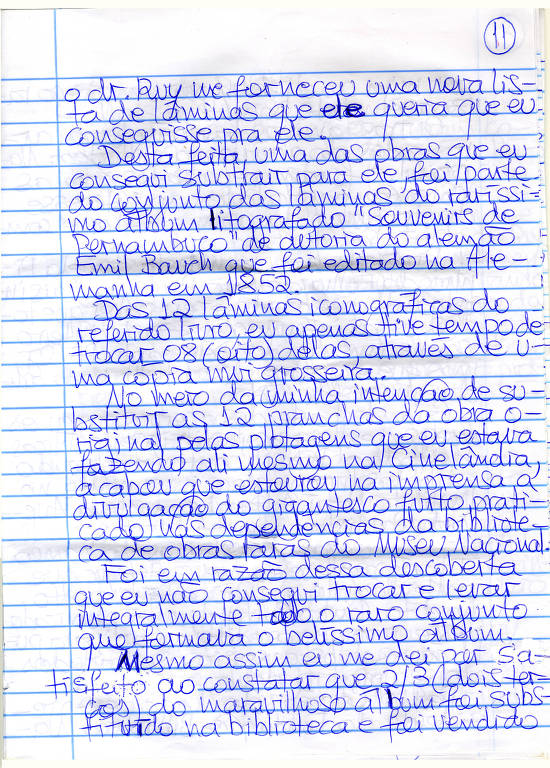 11
o dr. Ruy me forneceu uma nova lis-
ta de lâminas que ele queria que eu
conseguisse pra ele.
Desta feita, uma das obras que eu
consegui subtrair para ele foi parte
do conjunto das lâminas do raríssi-
mo álbum litografado "Souvenirs de
Pernambuco" de autoria do alemão
Emil Bauch que foi editado na Ale-
manha em 1852.
Das 12 lâminas iconográficas do
referido livro, eu apenas tive tempo de
trocar 08 (oito) delas, através de u-
ma cópia mui grosseira.
No meio da minha intenção de su-
bstituir as 12 pranchas da obra o-
riginal pelas plotagens que eu estava
fazendo ali mesmo na Cinelândia,
acabou que estourou na imprensa a
divulgação do gigantesco furto prati-
cado nas dependências da bibliote-
ca de obras raras do Museu Nacional.
Foi em razão dessa descoberta
que eu não consegui trocar e levar
integralmente todo o raro conjunto
que formava o belíssimo álbum.
Mesmo assim eu me dei por sa-
tisfeito ao constatar que 2/3 (dois ter-
ços) do maravilhoso álbum foi subs-
tituído na biblioteca e foi vendido